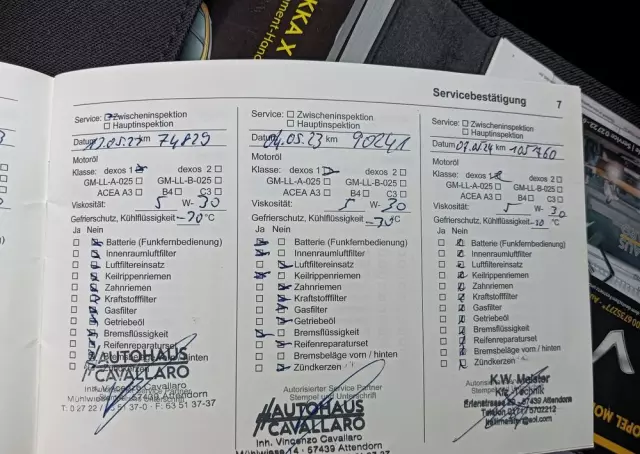 KKA X
Servicebestätigung 7
Service: Zwischeninspektion
Hauptinspektion
Datum km 74829
Motoröl
Klasse: dexos 1 dexos 2
GM-LL-A-025 GM-LL-B-025
ACEA A3 B4 C3
Viskosität: 5 W- 30
Gefrierschutz, Kühlflüssigkeit °C
Ja Nein
Batterie (Funkfernbedienung)
Innenraumluftfilter
Luftfiltereinsatz
Keilrippenriemen
Zahnriemen
Kraftstofffilter
Gasfilter
Getriebeöl
Bremsflüssigkeit
Reifenreparaturset
AUTOHAUS
CAVALLARO
Inh. Vincenzo Cavallaro
Service: Zwischeninspektion
Hauptinspektion
Datum 04.05.23 km 90241
Motoröl
Klasse: dexos 1 dexos 2
GM-LL-A-025 GM-LL-B-025
ACEA A3 B4 C3
Viskosität: 5 W- 30
Gefrierschutz, Kühlflüssigkeit -30 °C
Ja Nein
Batterie (Funkfernbedienung)
Innenraumluftfilter
Luftfiltereinsatz
Keilrippenriemen
Zahnriemen
Kraftstofffilter
Gasfilter
Getriebeöl
Bremsflüssigkeit
Reifenreparaturset
Bremsbeläge vorn / hinten
Zündkerzen
Autorisierter Service Partner
Stempel und Unterschrift
AUTOHAUS
CAVALLARO
Inh. Vincenzo Cavallaro
57439 Attendorn
Service: Zwischeninspektion
Hauptinspektion
Datum km 105760
Motoröl
Klasse: dexos 1 dexos 2
GM-LL-A-025 GM-LL-B-025
ACEA A3 B4 C3
Viskosität: 5 W- 30
Gefrierschutz, Kühlflüssigkeit °C
Ja Nein
Batterie (Funkfernbedienung)
Innenraumluftfilter
Luftfiltereinsatz
Keilrippenriemen
Zahnriemen
Kraftstofffilter
Gasfilter
Getriebeöl
Bremsflüssigkeit
Reifenreparaturset
Bremsbeläge vorn / hinten
Zündkerzen
K.W. Meister
Kfz-Technik
57439 Attendorn
OPEL MO